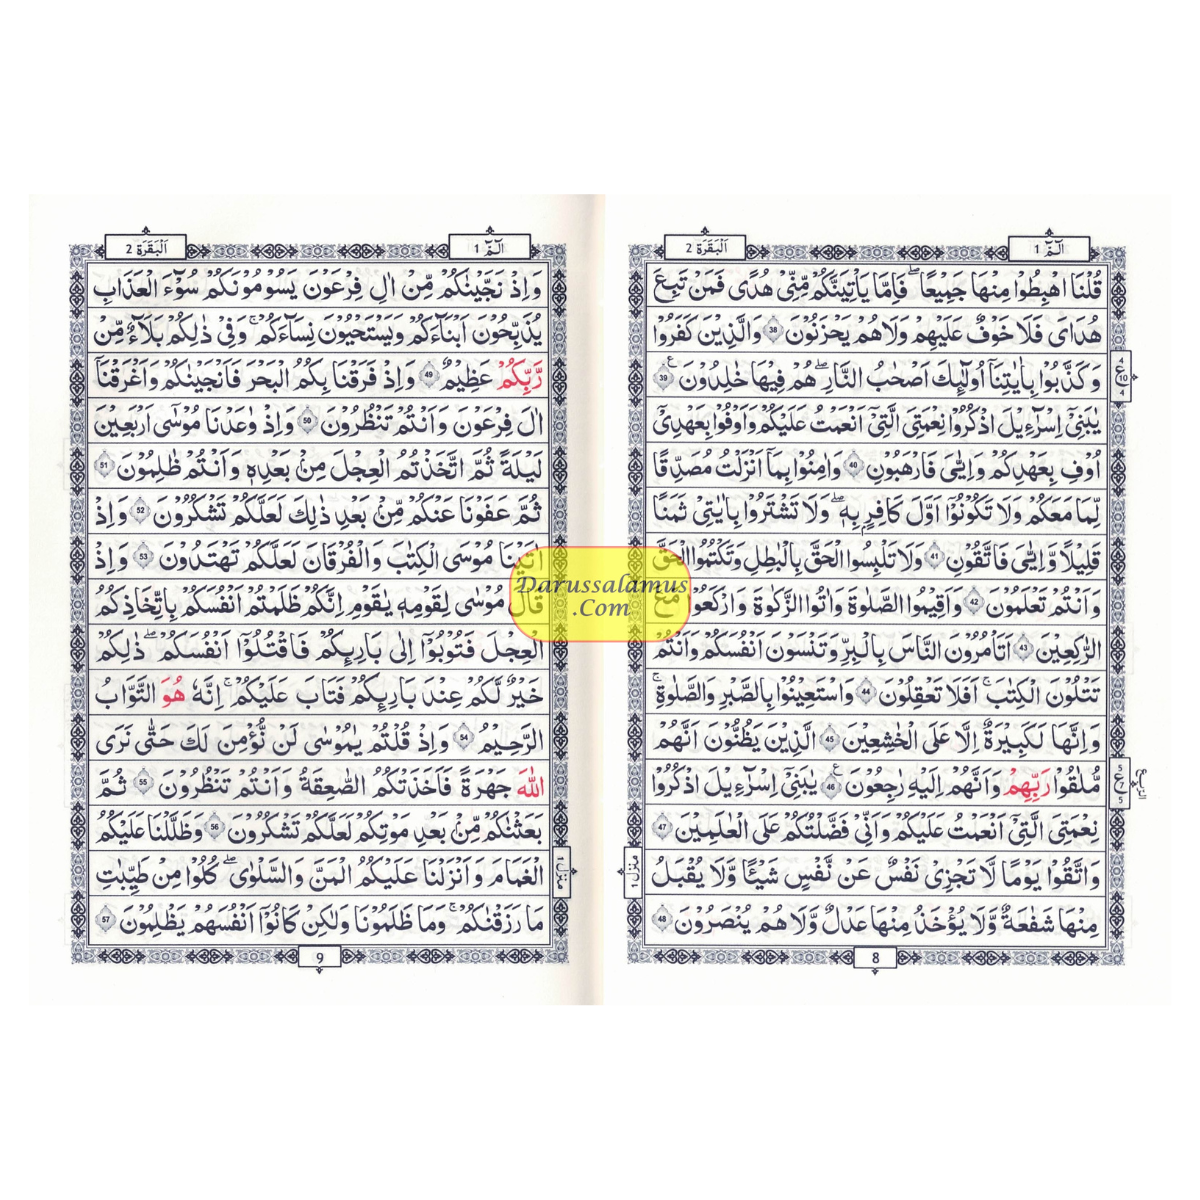 الٓمّٓ 1
اَلْبَقَرَة 2
قُلْنَا اهْبِطُوْا مِنْهَا جَمِيْعًا ۚ فَاِمَّا يَاْتِيَنَّكُمْ مِّنِّيْ هُدًى فَمَنْ تَبِعَ
هُدَايَ فَلَا خَوْفٌ عَلَيْهِمْ وَلَا هُمْ يَحْزَنُوْنَ 38 وَالَّذِيْنَ كَفَرُوْا
وَكَذَّبُوْا بِاٰيٰتِنَآ اُولٰٓئِكَ اَصْحٰبُ النَّارِ ۚ هُمْ فِيْهَا خٰلِدُوْنَ 39 ع
يٰبَنِيْٓ اِسْرَآءِيْلَ اذْكُرُوْا نِعْمَتِيَ الَّتِيْٓ اَنْعَمْتُ عَلَيْكُمْ وَاَوْفُوْا بِعَهْدِيْٓ
اُوْفِ بِعَهْدِكُمْ وَاِيَّايَ فَارْهَبُوْنِ 40 وَاٰمِنُوْا بِمَآ اَنْزَلْتُ مُصَدِّقًا
لِّمَا مَعَكُمْ وَلَا تَكُوْنُوْٓا اَوَّلَ كَافِرٍۢ بِهٖ ۖ وَلَا تَشْتَرُوْا بِاٰيٰتِيْ ثَمَنًا
قَلِيْلًا وَّاِيَّايَ فَاتَّقُوْنِ 41 وَلَا تَلْبِسُوا الْحَقَّ بِالْبَاطِلِ وَتَكْتُمُوا الْحَقَّ
وَاَنْتُمْ تَعْلَمُوْنَ 42 وَاَقِيْمُوا الصَّلٰوةَ وَاٰتُوا الزَّكٰوةَ وَارْكَعُوْا مَعَ
الرّٰكِعِيْنَ 43 اَتَاْمُرُوْنَ النَّاسَ بِالْبِرِّ وَتَنْسَوْنَ اَنْفُسَكُمْ وَاَنْتُمْ
تَتْلُوْنَ الْكِتٰبَ ۚ اَفَلَا تَعْقِلُوْنَ 44 وَاسْتَعِيْنُوْا بِالصَّبْرِ وَالصَّلٰوةِ ۚ
وَاِنَّهَا لَكَبِيْرَةٌ اِلَّا عَلَى الْخٰشِعِيْنَ 45 الَّذِيْنَ يَظُنُّوْنَ اَنَّهُمْ
مُّلٰقُوْا رَبِّهِمْ وَاَنَّهُمْ اِلَيْهِ رٰجِعُوْنَ 46 ع يٰبَنِيْٓ اِسْرَآءِيْلَ اذْكُرُوْا
نِعْمَتِيَ الَّتِيْٓ اَنْعَمْتُ عَلَيْكُمْ وَاَنِّيْ فَضَّلْتُكُمْ عَلَى الْعٰلَمِيْنَ 47
وَاتَّقُوْا يَوْمًا لَّا تَجْزِيْ نَفْسٌ عَنْ نَّفْسٍ شَيْئًا وَّلَا يُقْبَلُ
مِنْهَا شَفٰعَةٌ وَّلَا يُؤْخَذُ مِنْهَا عَدْلٌ وَّلَا هُمْ يُنْصَرُوْنَ 48
4
ع
10
4
5
ع
7
5
الربع
منزل 1
8
الٓمّٓ 1
اَلْبَقَرَة 2
وَاِذْ نَجَّيْنٰكُمْ مِّنْ اٰلِ فِرْعَوْنَ يَسُوْمُوْنَكُمْ سُوْٓءَ الْعَذَابِ
يُذَبِّحُوْنَ اَبْنَآءَكُمْ وَيَسْتَحْيُوْنَ نِسَآءَكُمْ ۚ وَفِيْ ذٰلِكُمْ بَلَآءٌ مِّنْ
رَّبِّكُمْ عَظِيْمٌ 49 وَاِذْ فَرَقْنَا بِكُمُ الْبَحْرَ فَاَنْجَيْنٰكُمْ وَاَغْرَقْنَآ
اٰلَ فِرْعَوْنَ وَاَنْتُمْ تَنْظُرُوْنَ 50 وَاِذْ وٰعَدْنَا مُوْسٰٓى اَرْبَعِيْنَ
لَيْلَةً ثُمَّ اتَّخَذْتُمُ الْعِجْلَ مِنْۢ بَعْدِهٖ وَاَنْتُمْ ظٰلِمُوْنَ 51
ثُمَّ عَفَوْنَا عَنْكُمْ مِّنْۢ بَعْدِ ذٰلِكَ لَعَلَّكُمْ تَشْكُرُوْنَ 52 وَاِذْ
اٰتَيْنَا مُوْسَى الْكِتٰبَ وَالْفُرْقَانَ لَعَلَّكُمْ تَهْتَدُوْنَ 53 وَاِذْ
قَالَ مُوْسٰى لِقَوْمِهٖ يٰقَوْمِ اِنَّكُمْ ظَلَمْتُمْ اَنْفُسَكُمْ بِاتِّخَاذِكُمُ
الْعِجْلَ فَتُوْبُوْٓا اِلٰى بَارِئِكُمْ فَاقْتُلُوْٓا اَنْفُسَكُمْ ۖ ذٰلِكُمْ
خَيْرٌ لَّكُمْ عِنْدَ بَارِئِكُمْ فَتَابَ عَلَيْكُمْ ۚ اِنَّهٗ هُوَ التَّوَّابُ
الرَّحِيْمُ 54 وَاِذْ قُلْتُمْ يٰمُوْسٰى لَنْ نُّؤْمِنَ لَكَ حَتّٰى نَرَى
اللّٰهَ جَهْرَةً فَاَخَذَتْكُمُ الصّٰعِقَةُ وَاَنْتُمْ تَنْظُرُوْنَ 55 ثُمَّ
بَعَثْنٰكُمْ مِّنْۢ بَعْدِ مَوْتِكُمْ لَعَلَّكُمْ تَشْكُرُوْنَ 56 وَظَلَّلْنَا عَلَيْكُمُ
الْغَمَامَ وَاَنْزَلْنَا عَلَيْكُمُ الْمَنَّ وَالسَّلْوٰى ۖ كُلُوْا مِنْ طَيِّبٰتِ
مَا رَزَقْنٰكُمْ ۚ وَمَا ظَلَمُوْنَا وَلٰكِنْ كَانُوْٓا اَنْفُسَهُمْ يَظْلِمُوْنَ 57
منزل 1
9
Darussalamus
.Com